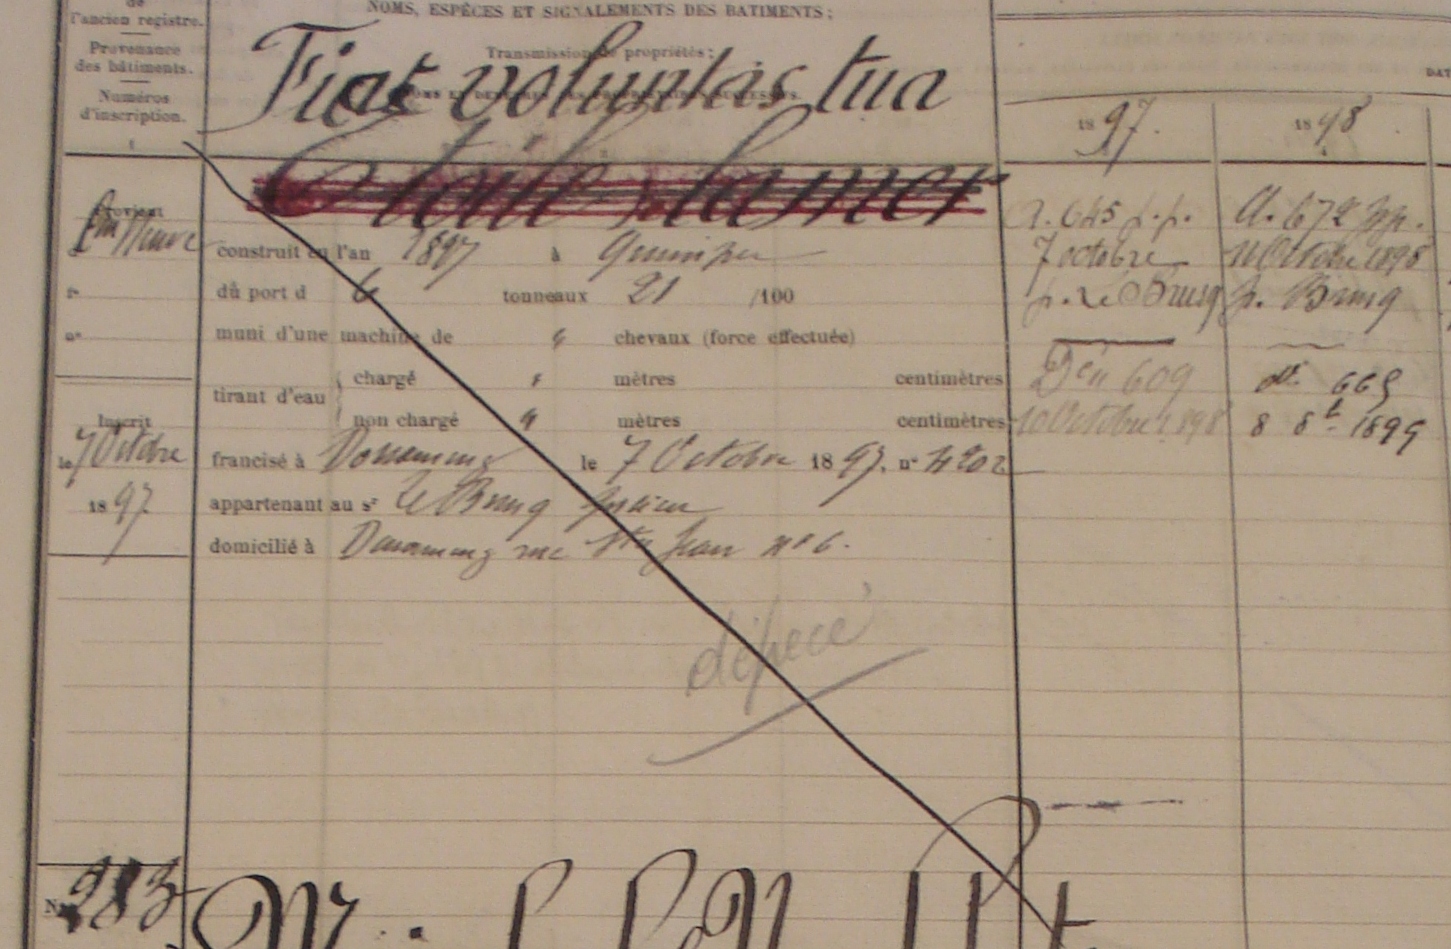 de
l'ancien registre.
Provenance
des bâtiments.
Numéros
d'inscription.
1
NOMS, ESPÈCES ET SIGNALEMENTS DES BATIMENTS;
Transmission de propriétés;
NOMS ET DES PROPRIÉTAIRES SUCCESSIFS.
Fiat voluntas tua
DAT
1897.
1898
Provient
construit en l'an 1897 à Quimper
du port d 6 tonneaux 21 /100
muni d'une machine de chevaux (force effectuée)
tirant d'eau
chargé " mètres centimètres
non chargé " mètres centimètres
Inscrit
le 7 Octbre
1897
francisé à Douarnenez le 7 Octobre 1897. n° 4202
appartenant au sr Le Brusq
domicilié à Douarnenez rue Jean n° 6.
dépecé
A. 645 p.p.
7 octobre
p. Le Brusq
609
10 Octobre 1898
A. 672 pp.
11 Octobre 1898
p. Brusq
665
8 8bre 1899
No 983